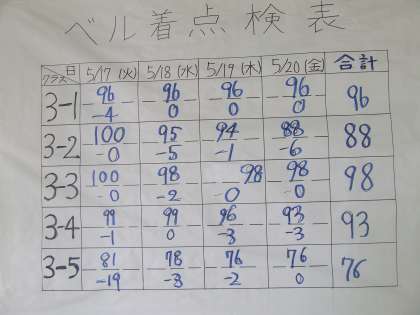 ベル着点検表
日 クラス 5/17(火) 5/18(水) 5/19(木) 5/20(金) 合計
3-1 96 96 96 96 96
-4 0 0 0
3-2 100 95 94 88 88
-0 -5 -1 -6
3-3 100 98 98 98 98
-0 -2 -0 -0
3-4 99 99 96 93 93
-1 0 -3 -3
3-5 81 78 76 76 76
-19 -3 -2 0